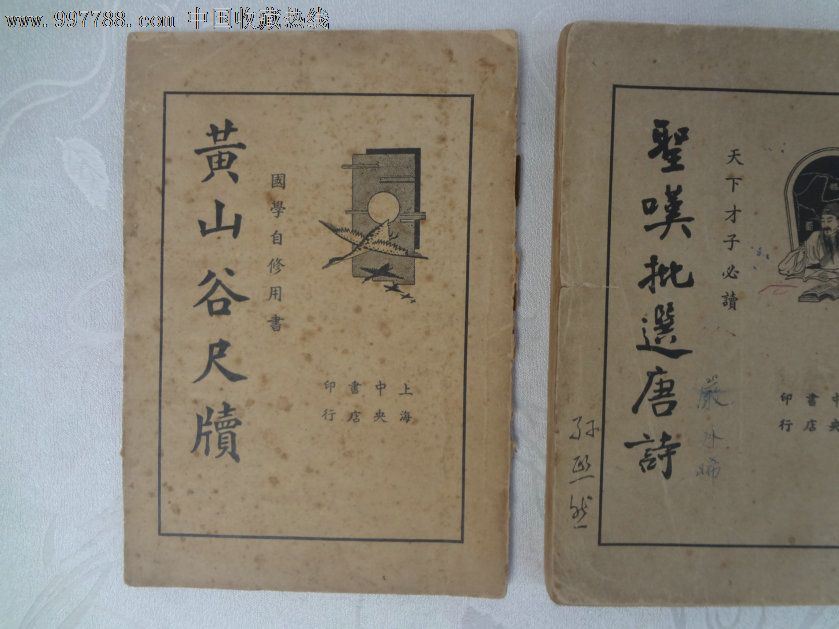 www.997788.com 中国收藏热线
黃山谷尺牘
國學自修用書
上海
中央
書店
印行
聖嘆批選唐詩
天下才子必讀
中央
書店
印行